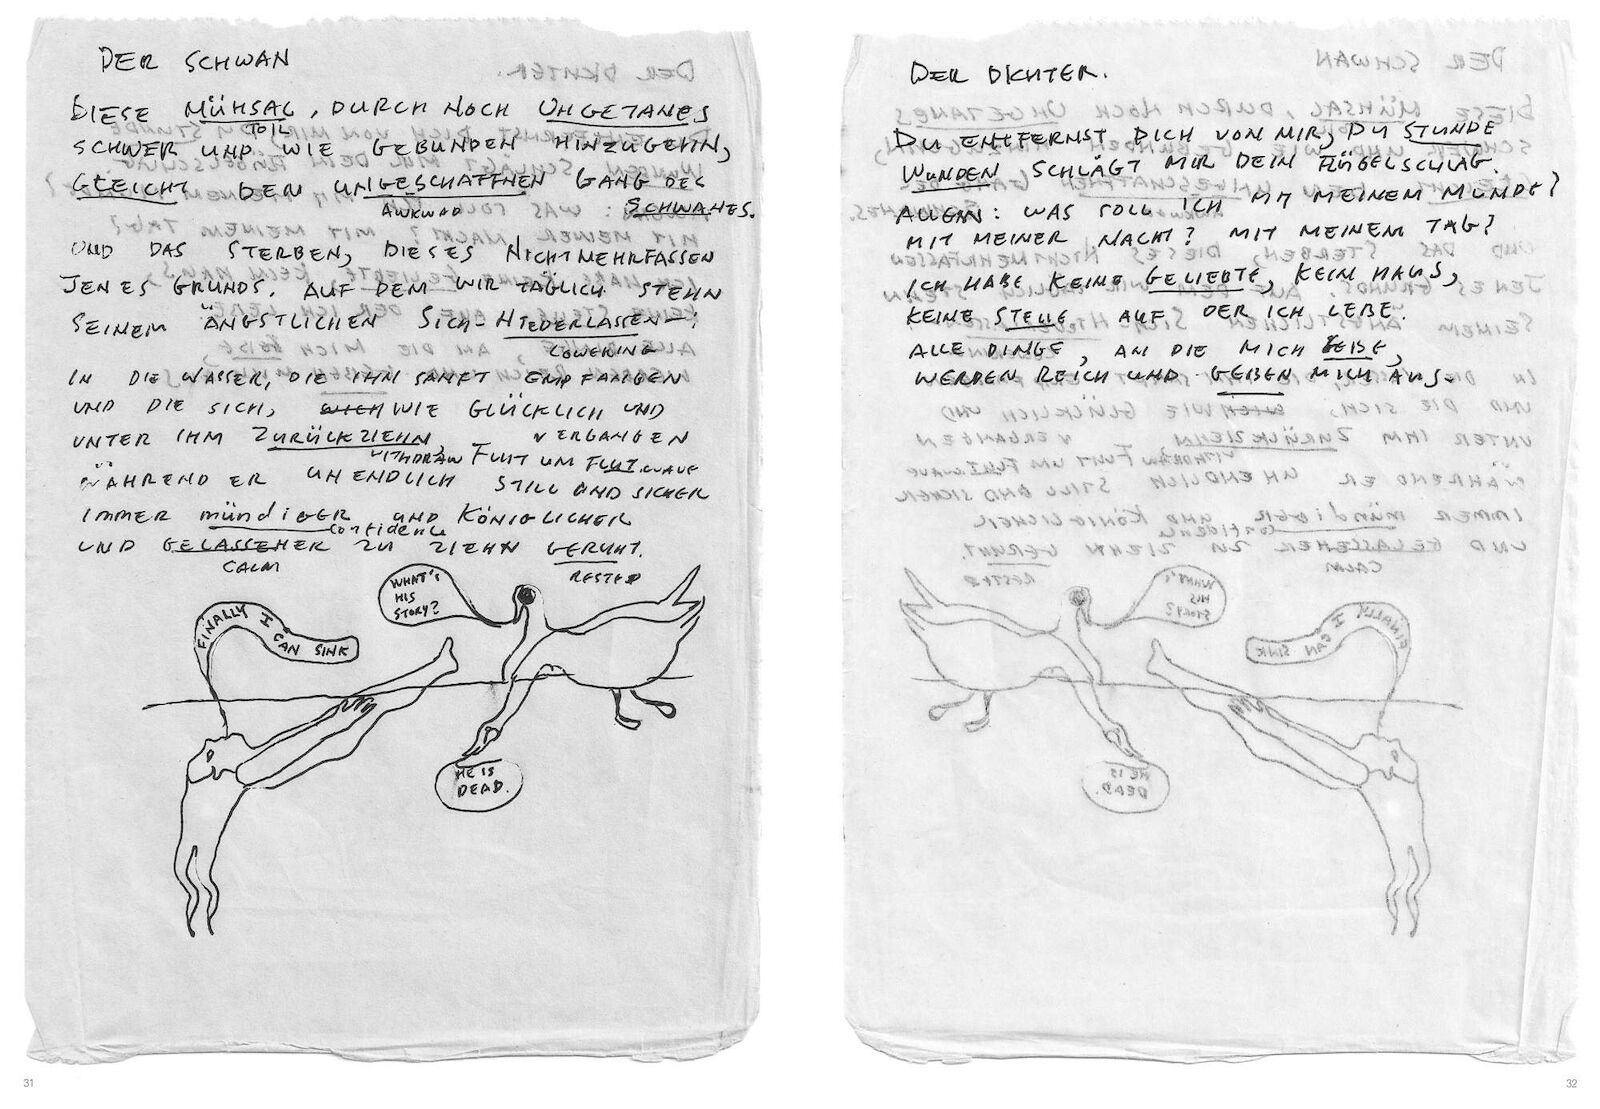 DER SCHWAN
DIESE MÜHSAL, DURCH NOCH UNGETANES
TOIL
SCHWER UND WIE GEBUNDEN HINZUGEHN,
GLEICHT DEN UNGESCHAFFNEN GANG DES
AWKWAD SCHWANES.
UND DAS STERBEN, DIESES NICHTMEHRFASSEN
JENES GRUNDS, AUF DEM WIR TÄGLICH STEHN
SEINEM ÄNGSTLICHEN SICH-NIEDERLASSEN—:
LOWERING
IN DIE WASSER, DIE IHN SANFT EMPFANGEN
UND DIE SICH, WIE GLÜCKLICH UND
UNTER IHM ZURÜCKZIEHN, VERGANGEN
WITHDRAW FLUT UM FLUT, WAVE
WÄHREND ER UNENDLICH STILL UND SICHER
IMMER mündiGER UND KÖNIGLICHER
confidence
UND GELASSENER ZU ZIEHN GERUHT.
CALM RESTED
WHAT'S
HIS
STORY?
FINALLY I CAN SINK
HE IS
DEAD.
31
DER DICHTER.
DU ENTFERNST DICH VON MIR, DU STUNDE
WUNDEN SCHLÄGT MIR DEIN FLÜGELSCHLAG.
ALLEIN: WAS SOLL ICH MIT MEINEM MUNDE?
MIT MEINER NACHT? MIT MEINEM TAG?
ICH HABE KEINE GELIEBTE, KEIN HAUS,
KEINE STELLE AUF DER ICH LEBE.
ALLE DINGE, AN DIE MICH GEBE,
WERDEN REICH UND GEBEN MICH AUS.
32